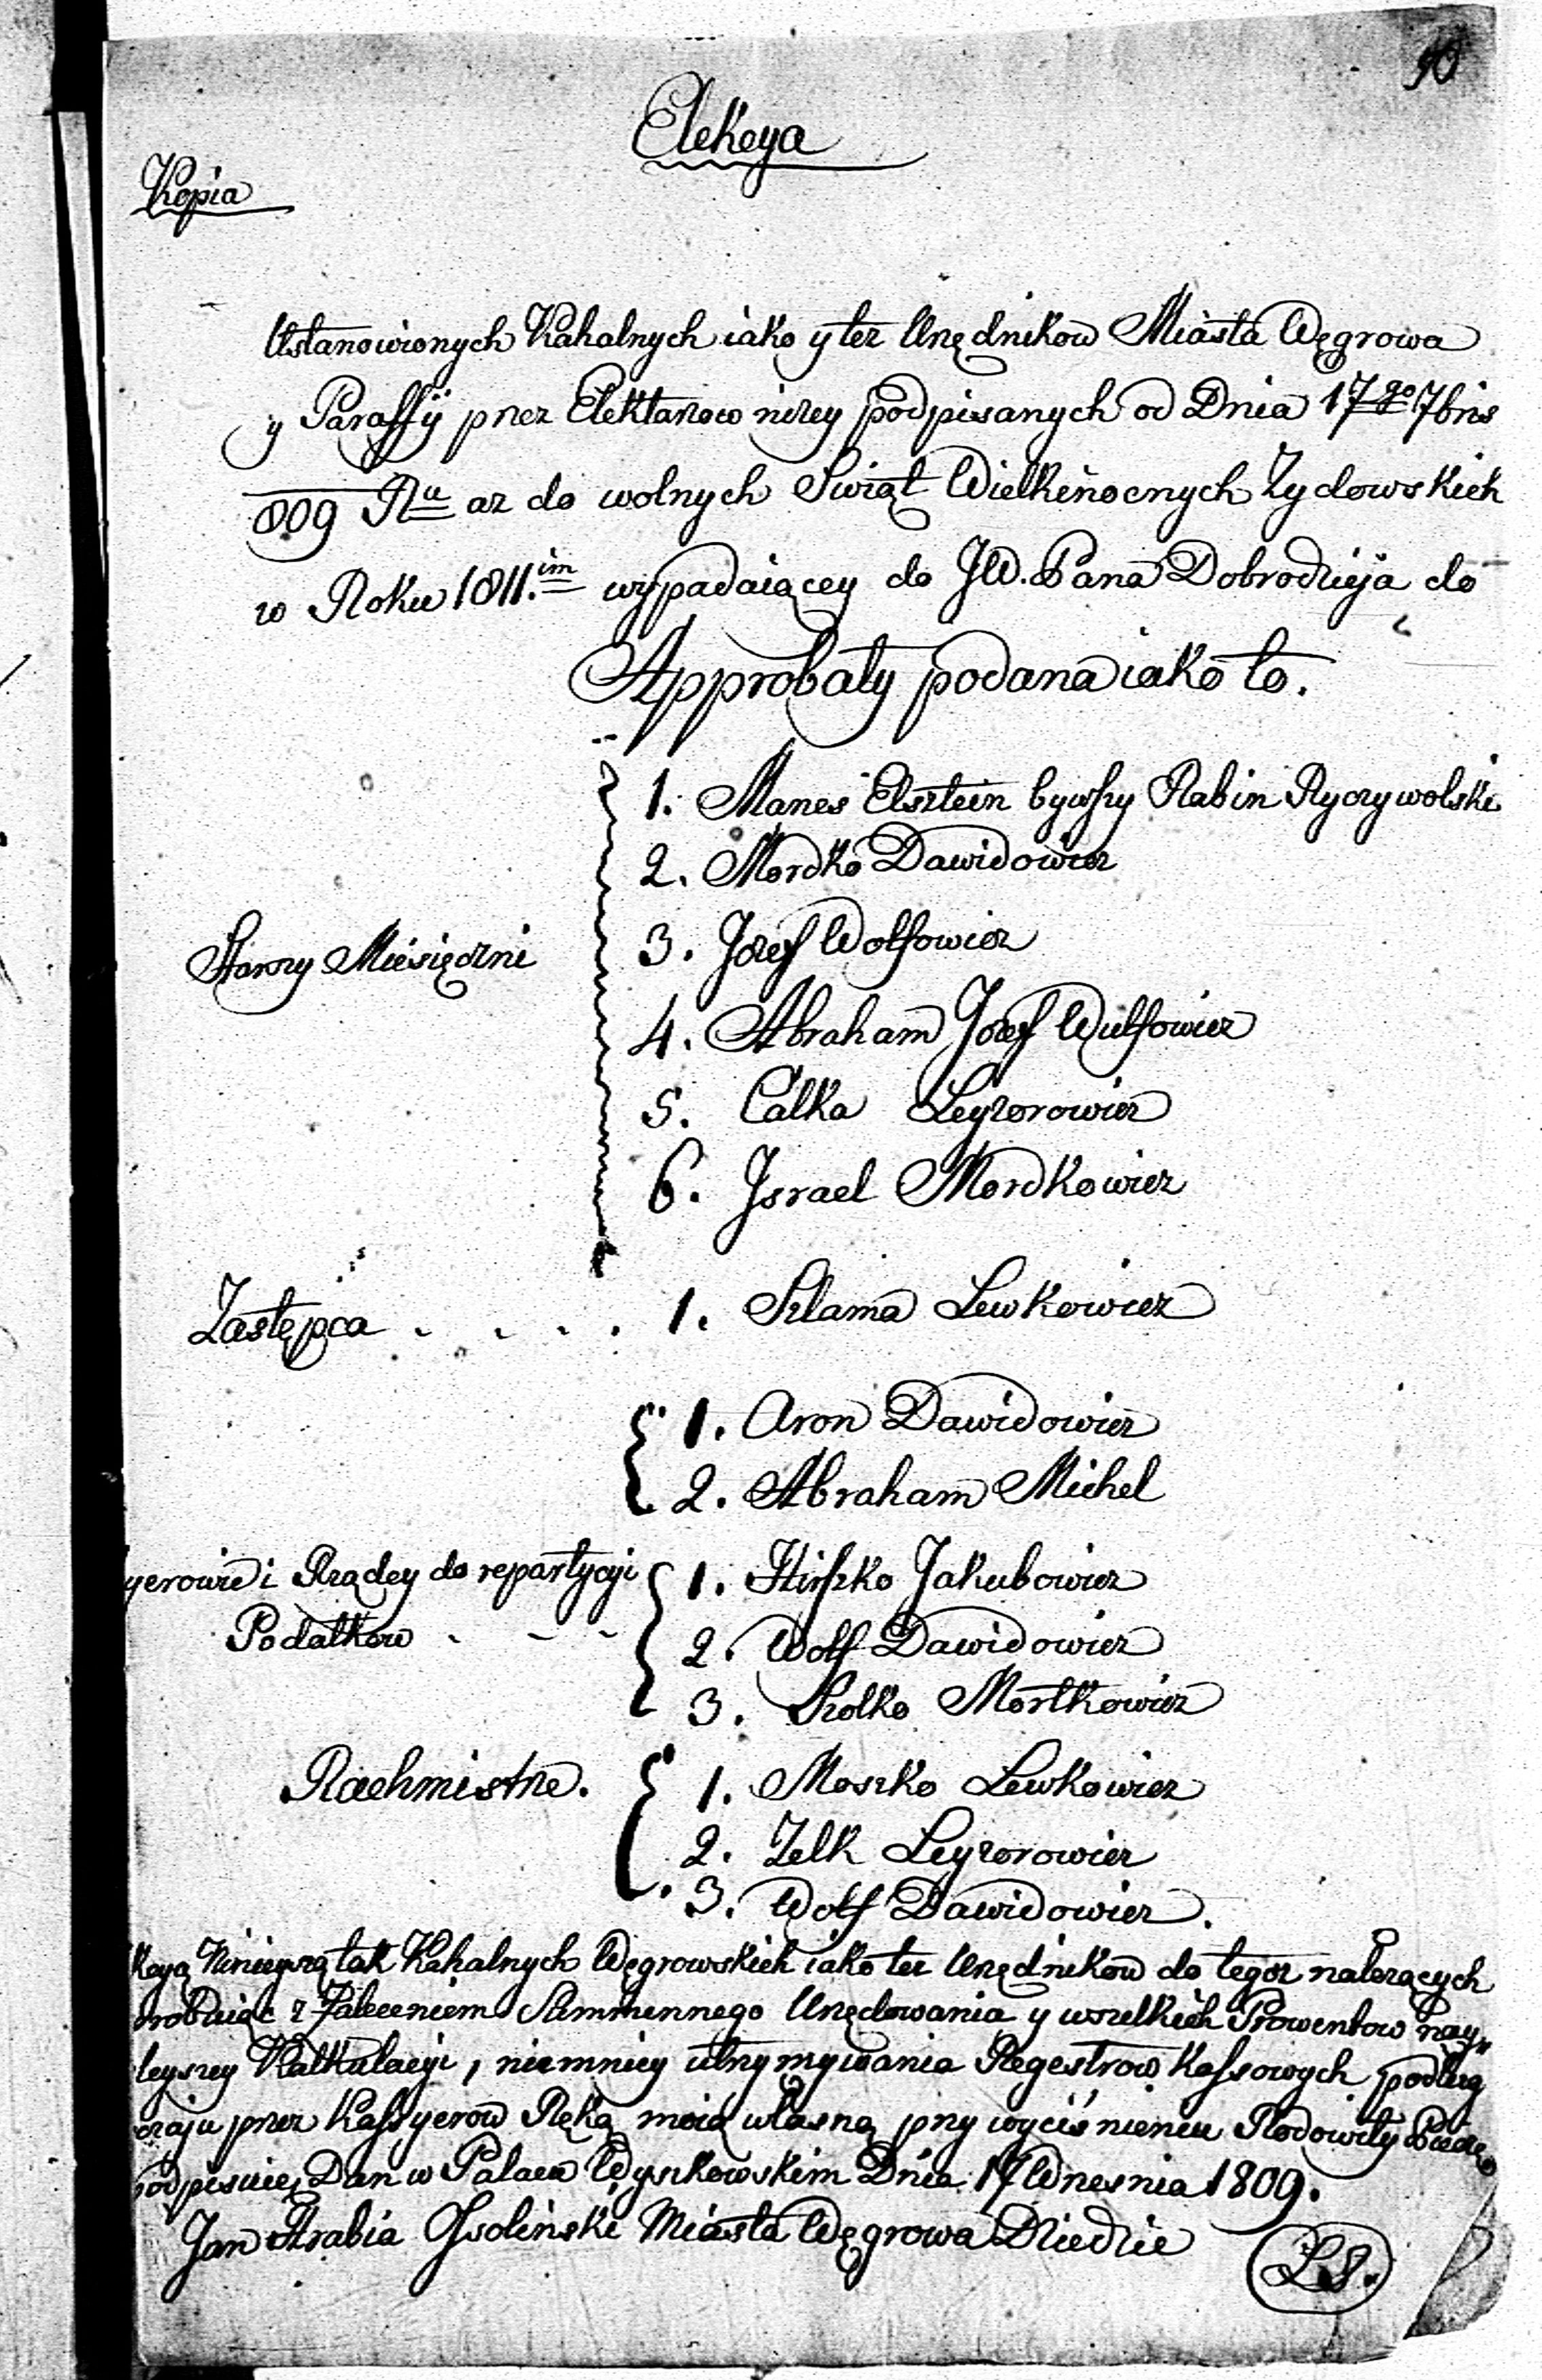 90
Elekcya
Kopia
Ustanowionych Kahalnych iako y też Urzędnikow Miasta Węgrowa
y Paraffij przez Elektarzow niżey podpisanych od Dnia 17go 7bris
809 Ru aż do wolnych Swiąt Wielkienocnych Zydowskich
w Roku 1811.im wypadaiącey do JW. Pana Dobrodzieja do
Approbaty podana iako to.
1. Manes Elsztein bywszy Rabin Ryczywolski
2. Mordko Dawidowicz
Starszy Miesięczni
3. Jozef Wolfowicz
4. Abraham Jozef Wulfowicz
5. Calka Leyzorowicz
6. Jsrael Mordkowicz
Zastępca . . . . 1. Szlama Lewkowicz
1. Aron Dawidowicz
2. Abraham Michel
yerowie i Rządcy do repartycyi 1. Hirszko Jakubowicz
Podatkow - - - 2. Wolf Dawidowicz
3. Szolko Mortkowicz
Rachmistrze. 1. Moszko Lewkowicz
2. Zelk Leyzorowicz
3. Wolf Dawidowicz.
kcyą Ninieyszą tak Kahalnych Węgrowskich iako też Urzędnikow do tegoż należących
robuiąc z Zaleceniem Summiennego Urzędowania y wszelkich Prowentow nay„
leyszey Kalkulacyi, niemniey utrzymywania Regestrow Kassowych podług
czaju przez Kassyerow Ręką moią własną przy wyciśnieniu Rodowitey Pieczę
odpisuię Dan w Palacu Wyszkowskim Dnia 17 Wrzesnia 1809.
Jan Hrabia Ossoliński Miasta Węgrowa Dziedzic
L.S.